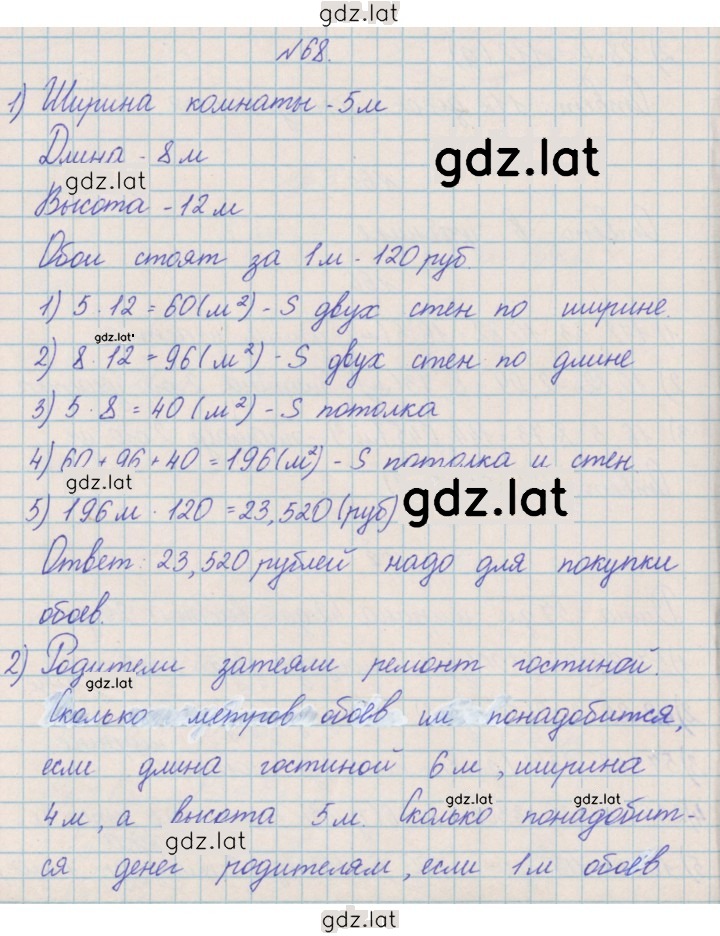 gdz.lat
№68.
1) Ширина комнаты - 5м
gdz.lat
Длина - 8м
gdz.lat
Высота - 12м
Обои стоят за 1м - 120 руб.
1) 5 · 12 = 60(м²) - S двух стен по ширине.
gdz.lat
2) 8 · 12 = 96(м²) - S двух стен по длине
3) 5 · 8 = 40(м²) - S потолка
4) 60 + 96 + 40 = 196(м²) - S потолка и стен
gdz.lat
gdz.lat
5) 196м · 120 = 23,520 (руб)
Ответ: 23,520 рублей надо для покупки
обоев.
2) Родители затеяли ремонт гостиной.
gdz.lat
Сколько метров обоев им понадобится,
если длина гостиной 6м, ширина
gdz.lat gdz.lat
4м, а высота 5м. Сколько понадобит-
gdz.lat
ся денег родителям, если 1м обоев
gdz.lat